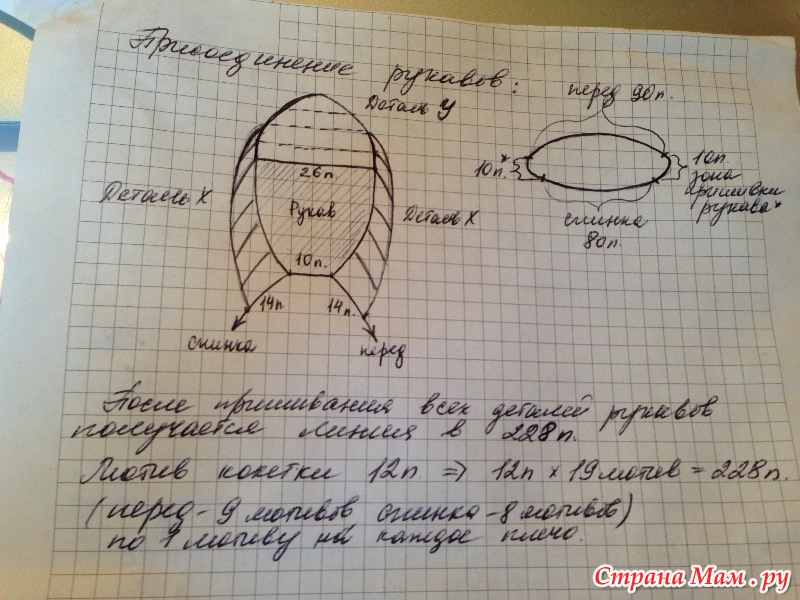 Присоединение рукавов:
Деталь У
перед 90п.
26п.
10п.*
10п.
зона
пришивки
рукава*
Деталь Х
Рукав
Деталь Х
спинка
80п.
10п.
14п.
14п.
спинка
перед
После пришивания всех деталей рукавов
получается линия в 228п.
Мотив кокетки 12п => 12п × 19 мотив = 228п.
(перед - 9 мотивов спинка - 8 мотивов)
по 1 мотиву на каждое плечо.
Страна Мам.ру